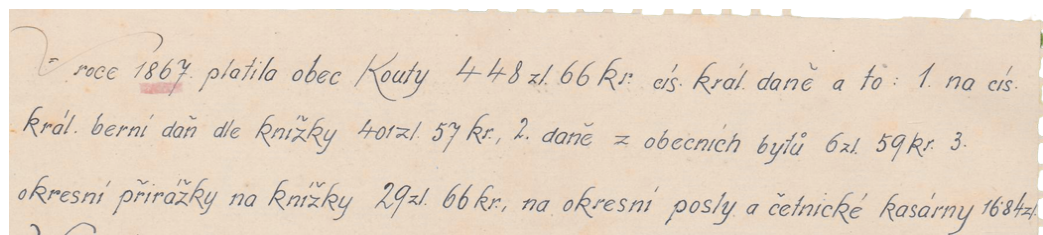 V roce 1867 platila obec Kouty 448 zl. 66 kr. cís. král. daně a to: 1. na cís.
král. berní daň dle knížky 401 zl. 57 kr., 2. daně z obecních bytů 6 zl. 59 kr. 3.
okresní přirážky na knížky 29 zl. 66 kr., na okresní posly a četnické kasárny 16·84 zl.